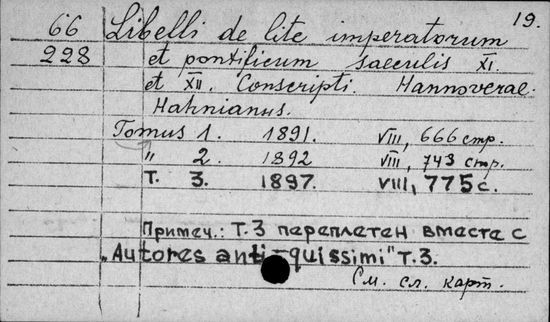 19.
66 Libelli de lite imperatorum
228 et pontificum saeculis XI.
et XII. Conscripti. Hannoverae.
Hahnianus.
Tomus 1. 1891. VIII, 666 стр.
" 2. 1892 VIII, 743 стр.
Т. 3. 1897. VIII, 775 с.
Примеч.: Т.3 переплетен вместе с
„Autores anti-quissimi" т.3.
См. сл. карт.